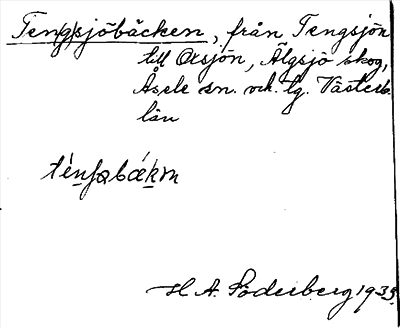 Ten(g)sjöbäcken, från Tengsjön
till Oxsjön, Älgsjö skog,
Åsele sn. och lg. Västerb.
län
H. A. Söderberg 1933.